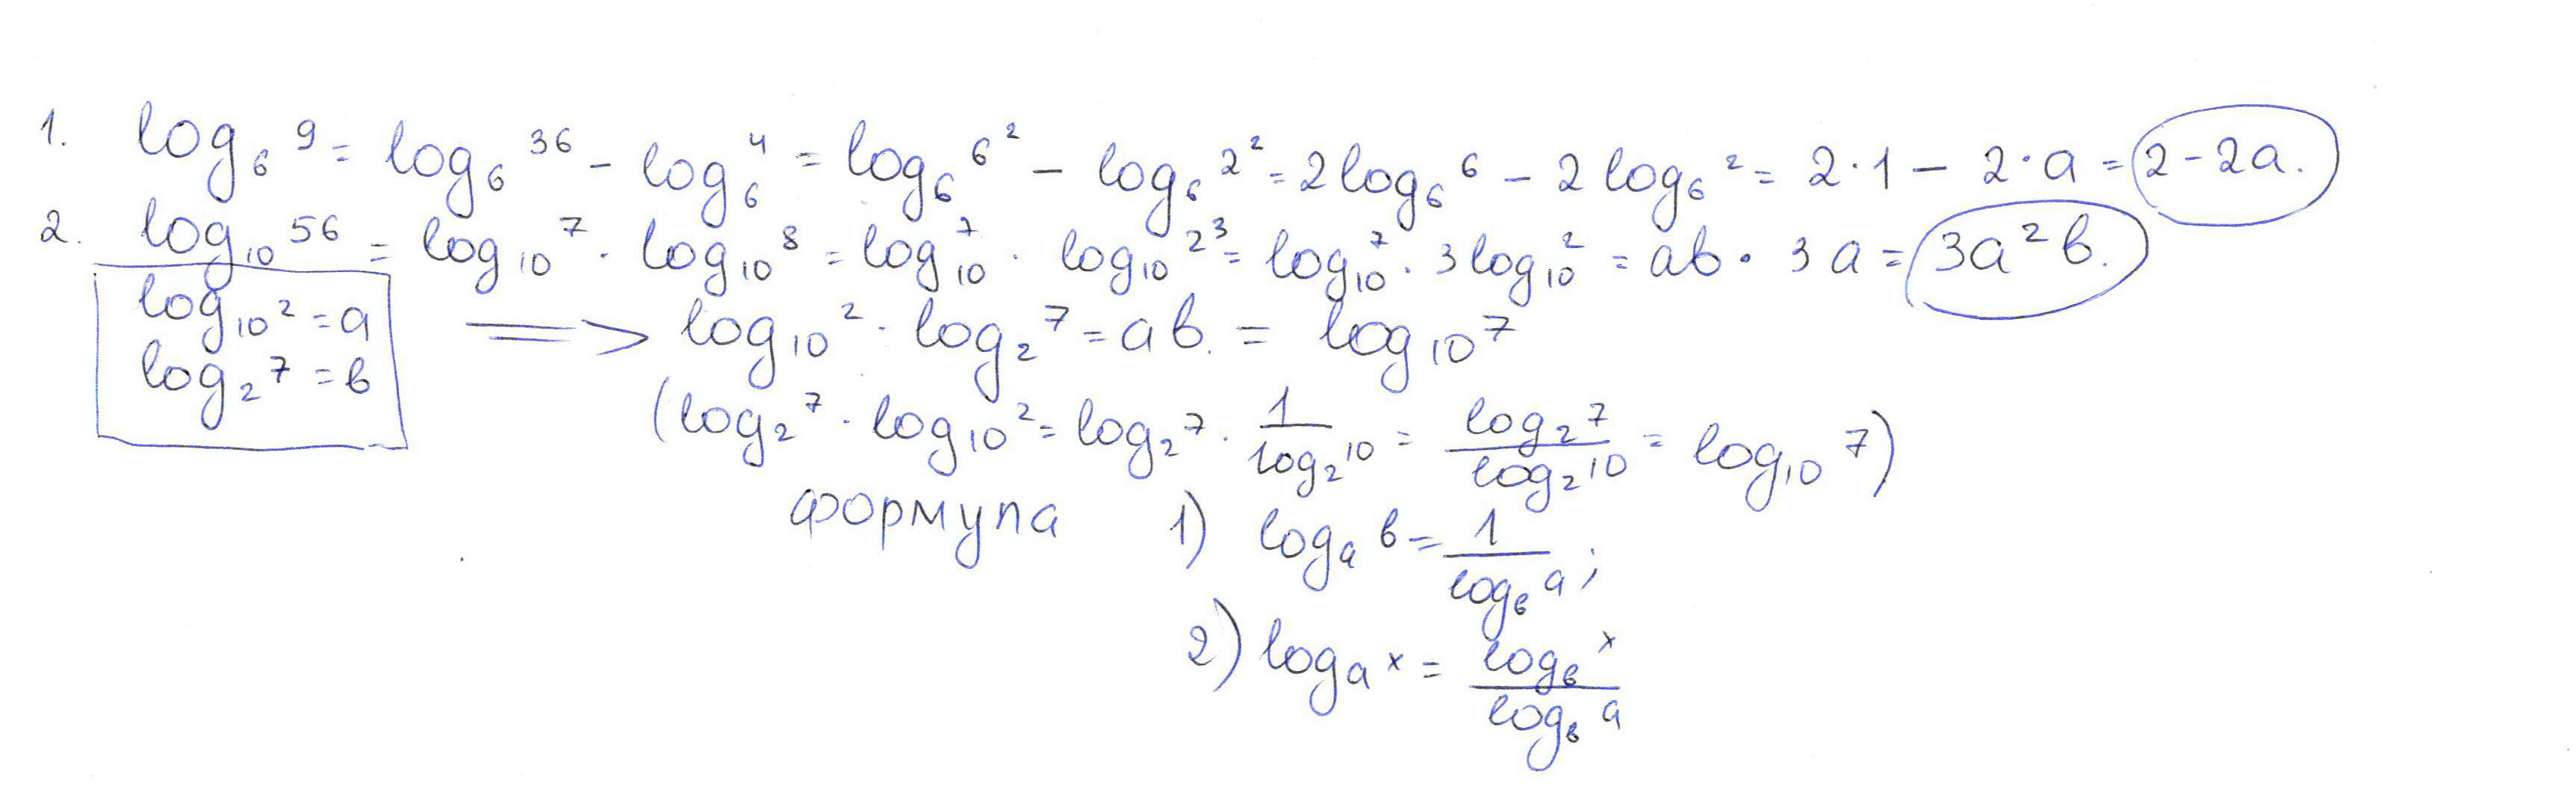 1. log₆ 9 = log₆ 36 - log₆ 4 = log₆ 6² - log₆ 2² = 2log₆ 6 - 2 log₆ 2 = 2·1 - 2·a = 2-2a.
2. log₁₀ 56 = log₁₀ 7 · log₁₀ 8 = log₁₀ 7 · log₁₀ 2³ = log₁₀ 7 · 3 log₁₀ 2 = ab · 3a = 3a²b.
log₁₀ 2 = a
log₂ 7 = b
⟹ log₁₀ 2 · log₂ 7 = ab. = log₁₀ 7
(log₂ 7 · log₁₀ 2 = log₂ 7 · 1/log₂ 10 = log₂ 7/log₂ 10 = log₁₀ 7)
формула 1) logₐ b = 1/log_b a;
2) logₐ x = log_b x/log_b a